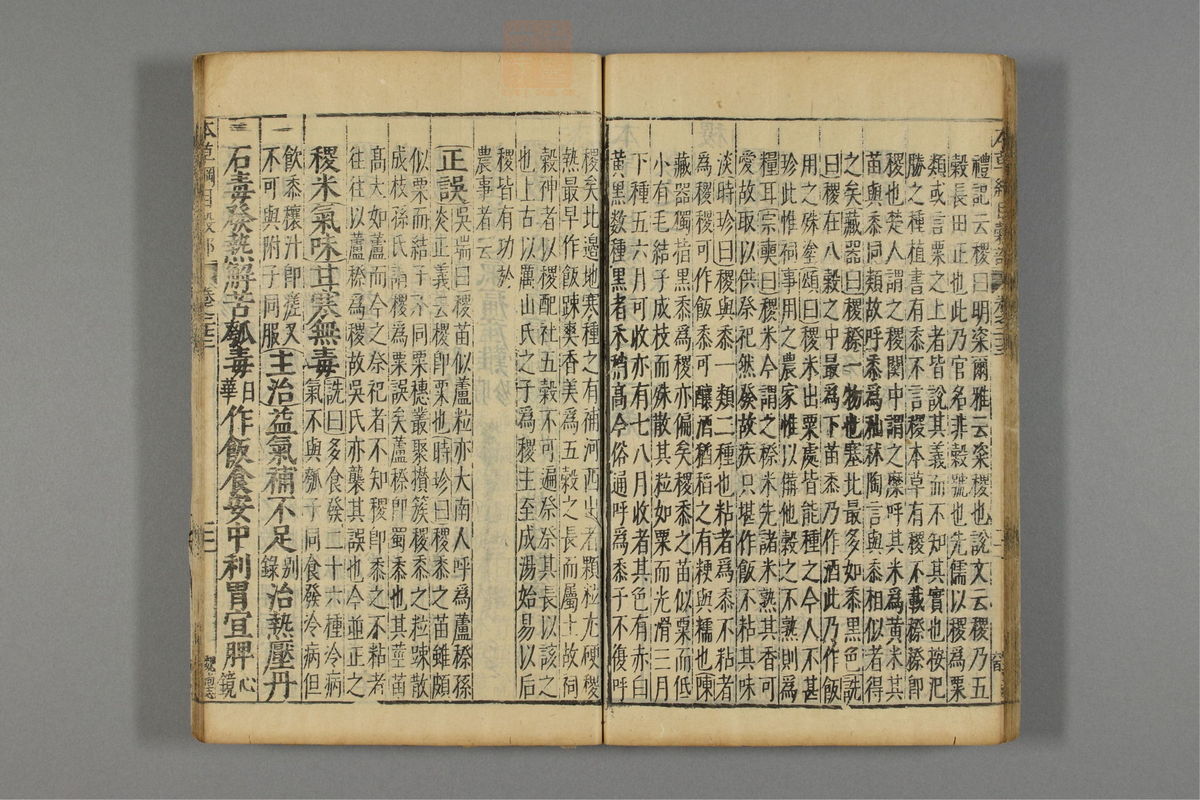 禮記云稷曰明粢爾雅云粢稷也說文云稷乃五
穀長田正也此乃官名非穀號也先儒以稷為粟
類或言粟之上者皆說其義而不知其實也按汜
勝之種植書有黍不言稷本草有稷不載穄穄即
稷也楚人謂之稷關中謂之䊳呼其米為黄米其
苗與黍同類故呼黍為秈秫陶言與黍相似者得
之矣藏器曰稷穄一物也塞北最多如黍黑色詵
曰稷在八穀之中最為下苗黍乃作酒此乃作飯
用之殊途頌曰稷米出粟處皆能種之今人不甚
珍此惟祠事用之農家惟以備他穀之不熟則為
糧耳宗奭曰稷米今謂之穄米先諸米熟其香可
愛故取以供祭祀然發故疾只堪作飯不粘其味
淡時珍曰稷與黍一類二種也粘者為黍不粘者
為稷稷可作飯黍可釀酒猶稻之有粳與糯也陳
藏器獨指黑黍為稷亦偏矣稷黍之苗似粟而低
小有毛結子成枝而殊散其粒如粟而光滑三月
下種五六月可收亦有七八月收者其色有赤白
黄黑數種黑者禾稍高今俗通呼為黍子不復呼
稷矣北邊地寒種之有補河西出者顆粒尤硬稷
熟最早作飯踈爽香美為五穀之長而屬土故祠
穀神者以稷配社五穀不可遍祭祭其長以該之
也上古以厲山氏之子為稷主至成湯始易以后
稷皆有功於
農事者云
正誤吳瑞曰稷苗似蘆粒亦大南人呼為蘆穄孫
炎正義云稷即粟也時珍曰稷黍之苗雖頗
似粟而結子不同粟穗叢聚攢簇稷黍之粒踈散
成枝孫氏謂稷為粟誤矣蘆穄即蜀黍也其莖苗
高大如蘆而今之祭祀者不知稷即黍之不粘者
往往以蘆穄為稷故吳氏亦襲其誤也今並正之
稷米氣味甘寒無毒詵曰多食發二十六種冷病
氣不與瓠子同食發冷病但
飲黍穰汁即瘥又
不可與附子同服主治益氣補不足别錄治熱壓丹
石毒發熱解苦瓠毒日華作飯食安中利胃宜脾心鏡
本草綱目穀部 卷之二十三